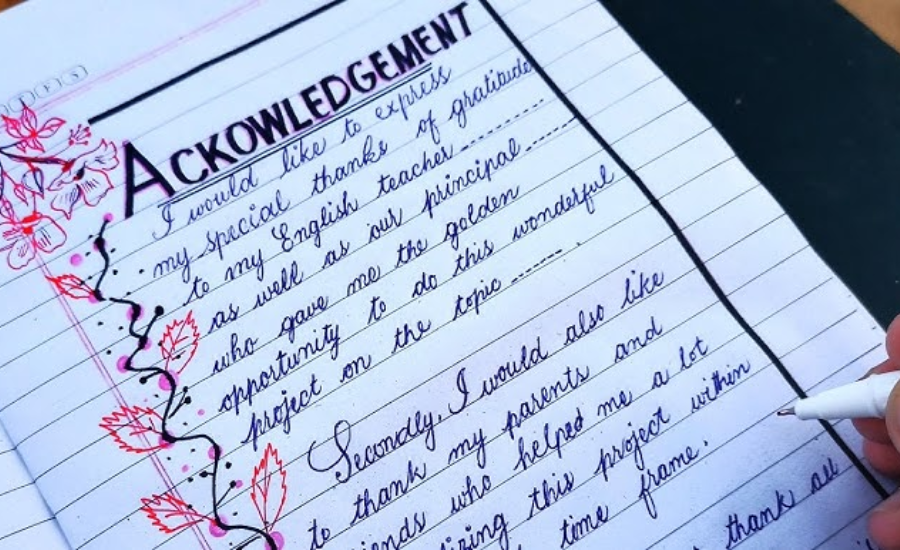 ACKOWLEDGEMENT
I would like to express
my special thanks of gratitude
to my English teacher ..........
as well as our principal ........
who gave me the golden
opportunity to do this wonderful
project on the topic ........ .
Secondly, I would also like
to thank my parents and
who helped me a lot
this project within
time frame.
thank all